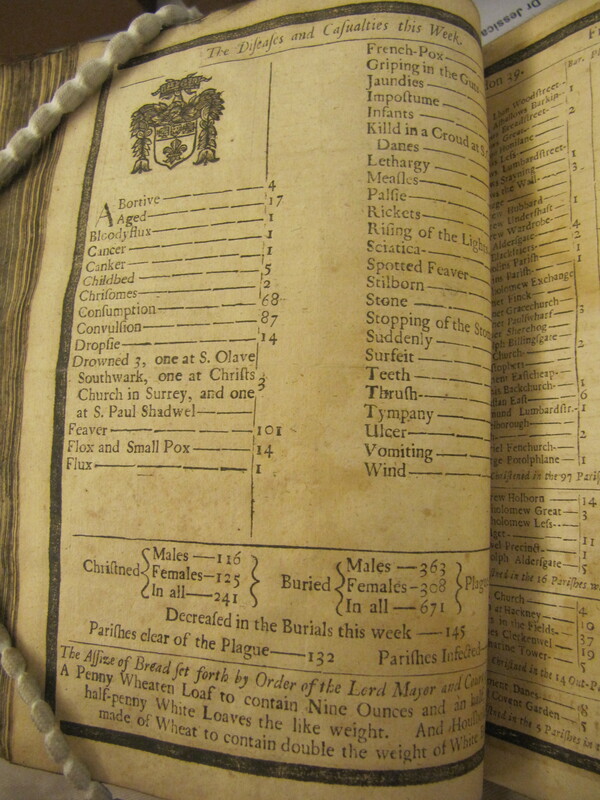 Dr Jessica
The Diſeaſes and Caſualties this Week.
ABortive — 4
Aged — 17
Bloodyflux — 1
Cancer — 1
Canker — 1
Childbed — 5
Chriſomes — 2
Conſumption — 68
Convulſion — 87
Dropſie — 14
Drowned 3, one at S. Olave
Southwark, one at Chriſts
Church in Surrey, and one 3
at S. Paul Shadwel —
Feaver — 101
Flox and Small Pox — 14
Flux — 1
French-Pox —
Griping in the Guts
Jaundies —
Impoſtume —
Infants —
Killd in a Croud at S.
Danes —
Lethargy —
Meaſles —
Palſie —
Rickets —
Riſing of the Lights
Sciatica —
Spotted Feaver —
Stilborn —
Stone —
Stopping of the
Suddenly —
Surfeit —
Teeth —
Thruſh —
Tympany —
Ulcer —
Vomiting —
Wind —
Chriſtned { Males — 116
Females — 125
In all — 241 }
Buried { Males — 363
Females — 308
In all — 671 } Plag
Decreaſed in the Burials this week — 145
Pariſhes clear of the Plague — 132 Pariſhes Infected —
The Aſſize of Bread ſet forth by Order of the Lord Mayor and
A Penny Wheaten Loaf to contain Nine Ounces and an half
half-penny White Loaves the like weight. And
made of Wheat to contain double the weight of White
ion 39.
Woodſtreet
Barkin
Breadſtreet — 1
Great — 2
Leſs
Lumbardſtreet
Stayning — 1
the Wall — 3
Hubbard
Underſhaft — 1
Wardrobe
Alderſgate — 4
Blackfriers — 2
Pariſh — 1
Pariſh
Exchange
Finck
Gracechurch
Paulſwharf — 3
Sherehog
Billingſgate
Church — 2
Eaſtcheap
Backchurch — 1
Eaſt — 6
Lumbardſtr. — 1
Fenchurch
Botolphlane — 1
Chriſtned in the 97 Pariſ
rew Holborn — 14
holomew Great — 3
holomew Leſs
Precinct — 1
olph Alderſgate — 5
in the 16 Pariſhes
Church — 4
at Hackney — 10
in the Fields — 37
Clerkenwel — 19
Tower — 5
in the 14 Out-Pa
Danes — 8
Covent Garden — 5
in the 5 Pariſhes in